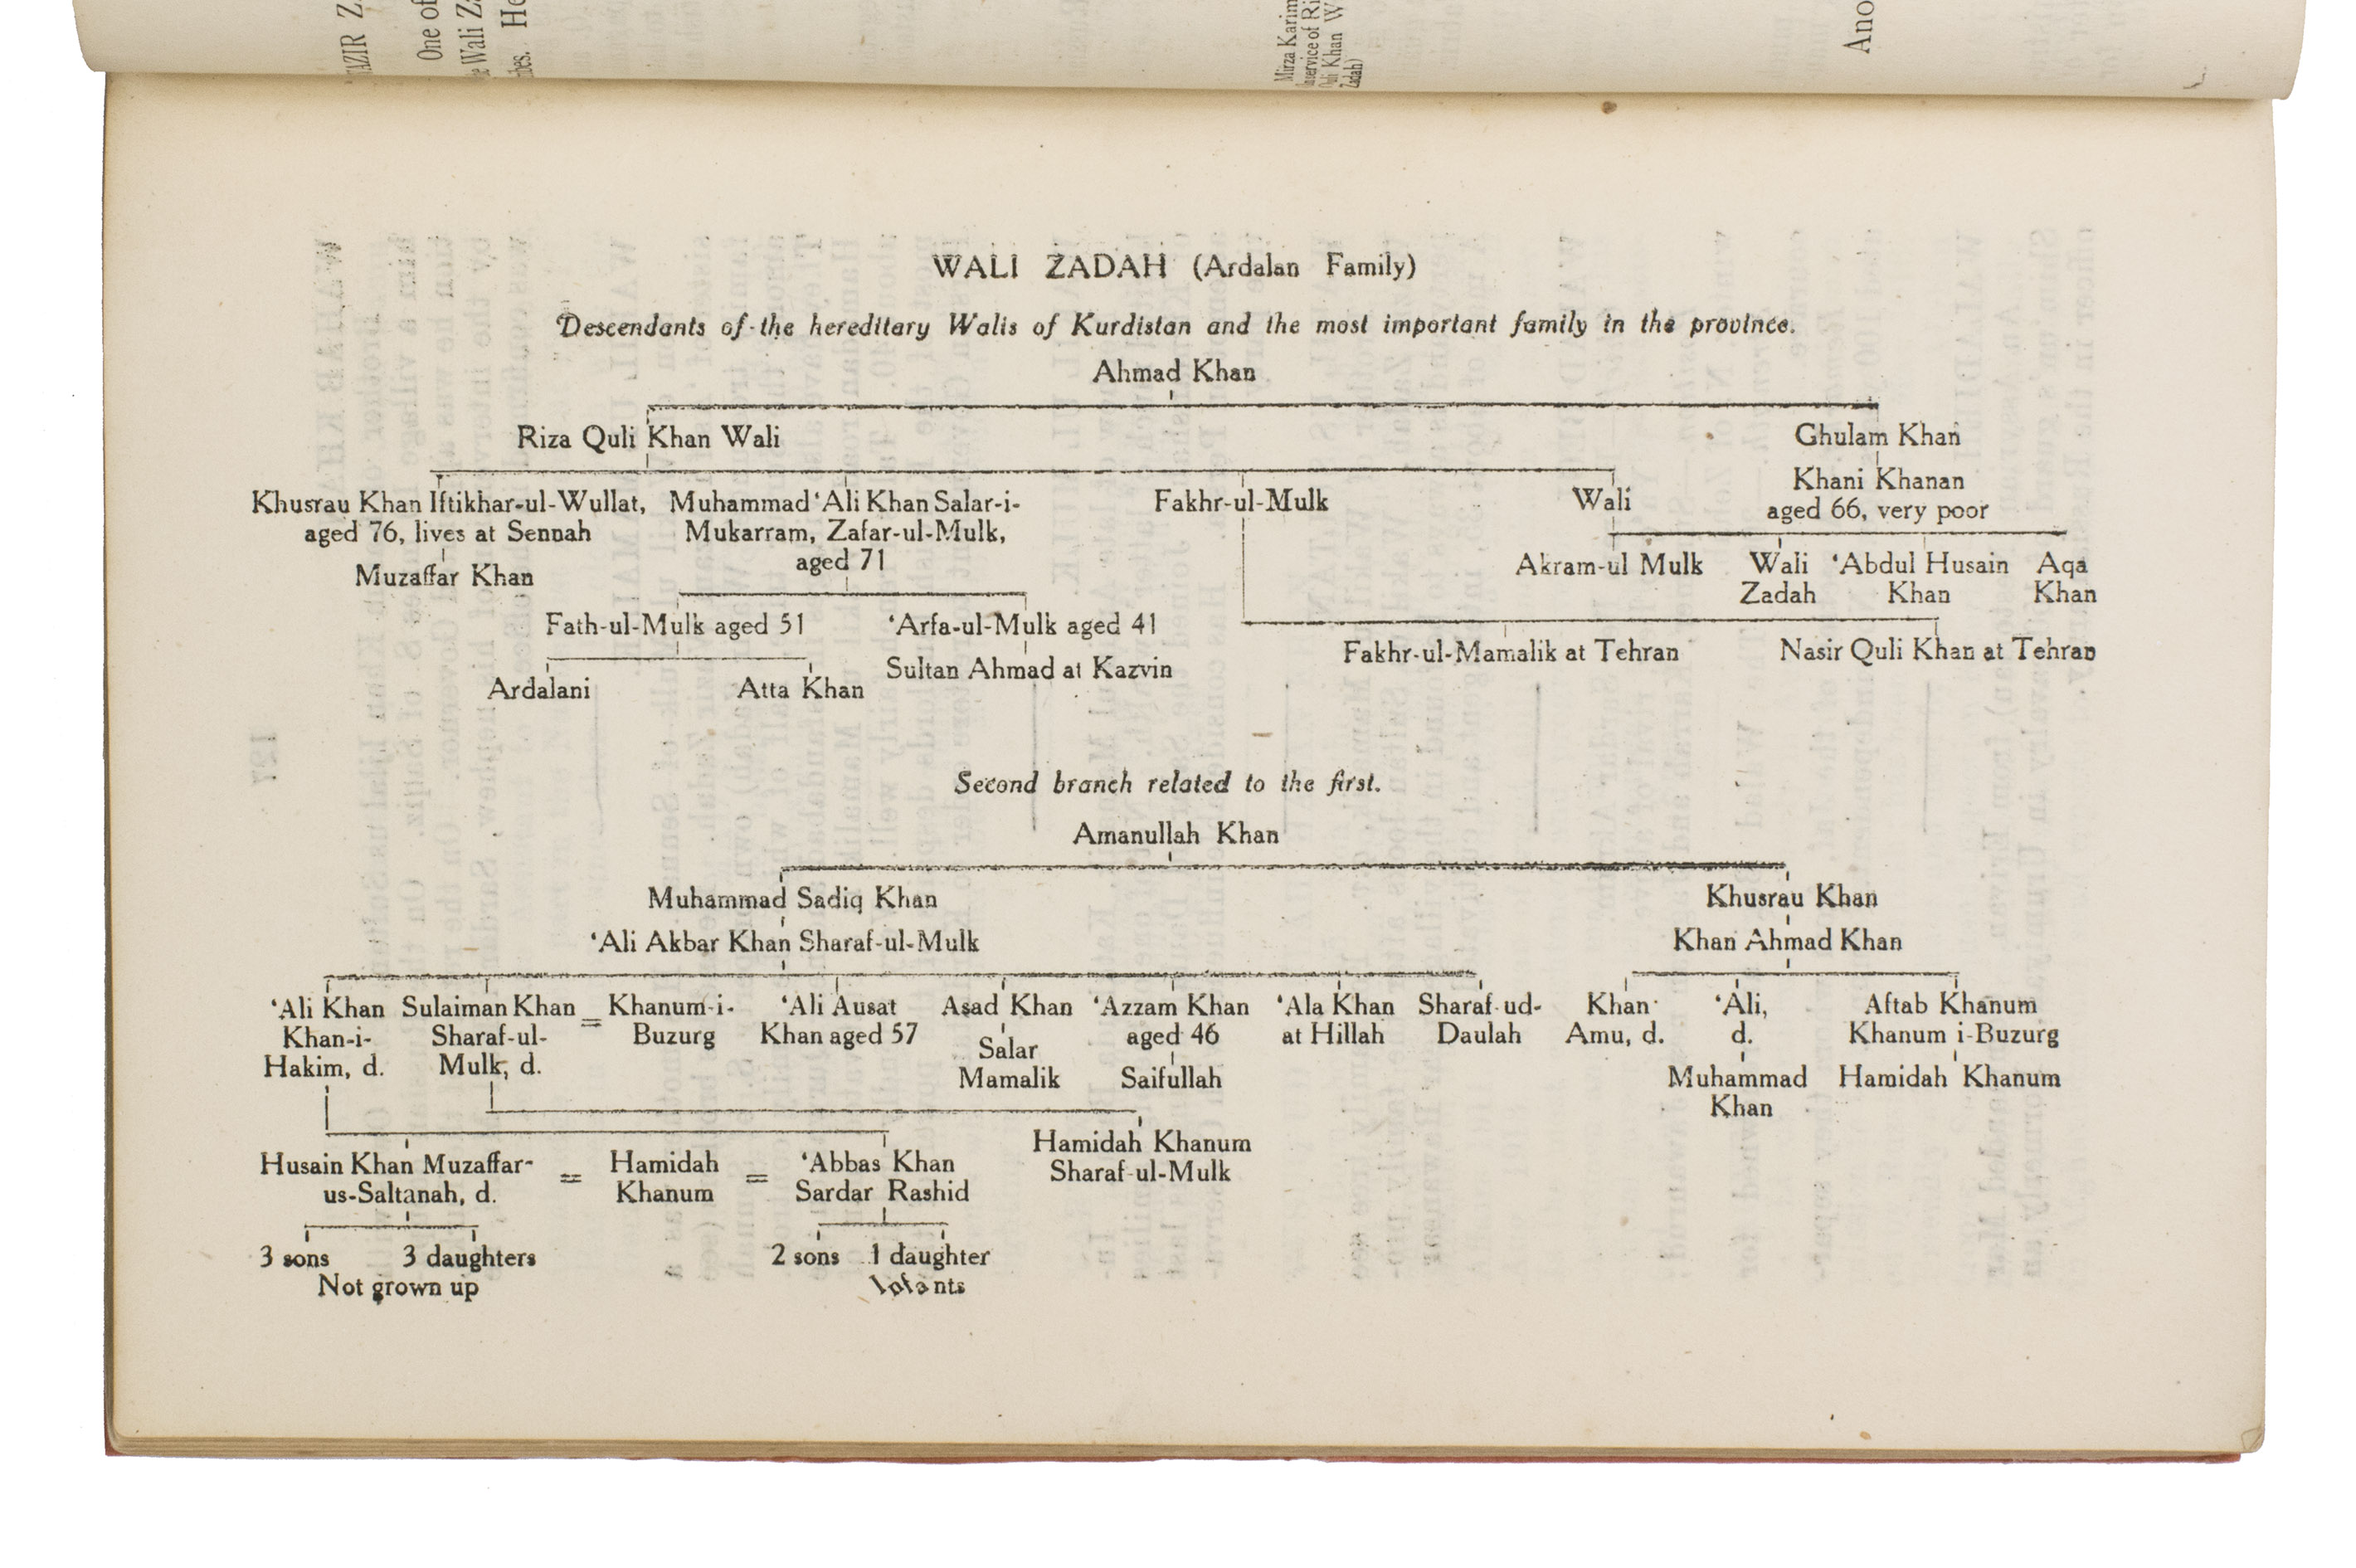 AZIR Z
One of
e Wali Za
bes. He
Mirza Karim
service of Ri
Quli Khan W
Zadah)
Ano
WALI ZADAH (Ardalan Family)
Descendants of the hereditary Walis of Kurdistan and the most important family in the province.
Ahmad Khan
Riza Quli Khan Wali
Ghulam Khan
Khusrau Khan Iftikhar-ul-Wullat,
aged 76, lives at Sennah
Muzaffar Khan
Muhammad ‘Ali Khan Salar-i-
Mukarram, Zafar-ul-Mulk,
aged 71
Fakhr-ul-Mulk
Wali
Khani Khanan
aged 66, very poor
Akram-ul Mulk
Wali
Zadah
‘Abdul Husain
Khan
Aqa
Khan
Fath-ul-Mulk aged 51
‘Arfa-ul-Mulk aged 41
Sultan Ahmad at Kazvin
Fakhr-ul-Mamalik at Tehran
Nasir Quli Khan at Tehran
Ardalani
Atta Khan
127
Second branch related to the first.
Amanullah Khan
Muhammad Sadiq Khan
Khusrau Khan
‘Ali Akbar Khan Sharaf-ul-Mulk
Khan Ahmad Khan
‘Ali Khan
Khan-i-
Hakim, d.
Sulaiman Khan
Sharaf-ul-
Mulk, d.
=
Khanum-i-
Buzurg
‘Ali Ausat
Khan aged 57
Asad Khan
Salar
Mamalik
‘Azzam Khan
aged 46
Saifullah
‘Ala Khan
at Hillah
Sharaf-ud-
Daulah
Khan
Amu, d.
‘Ali,
d.
Muhammad
Khan
Aftab Khanum
Khanum i-Buzurg
Hamidah Khanum
Hamidah Khanum
Sharaf-ul-Mulk
Husain Khan Muzaffar-
us-Saltanah, d.
=
Hamidah
Khanum
=
‘Abbas Khan
Sardar Rashid
3 sons 3 daughters
Not grown up
2 sons 1 daughter
Infants